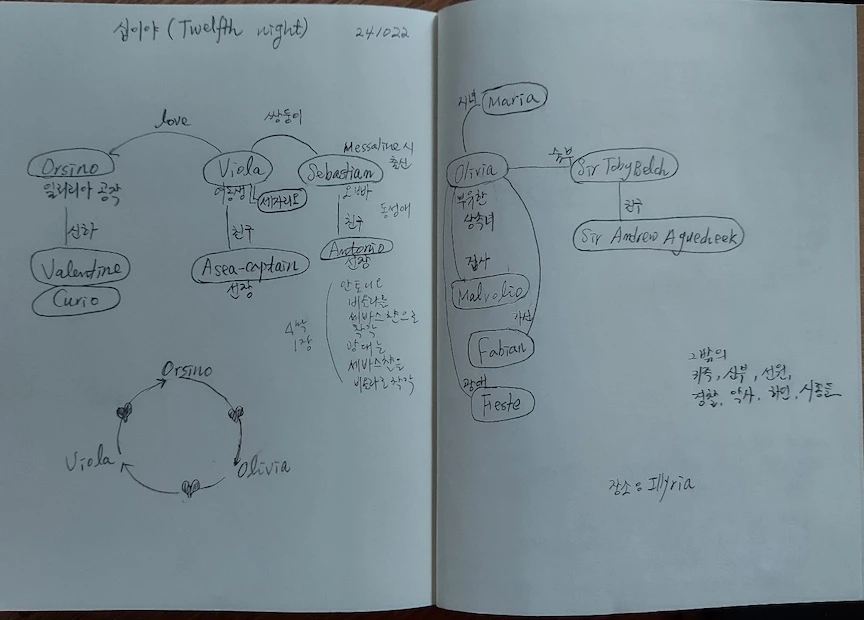 십이야 (Twelfth night)
241022
love
쌍둥이
Messaline 시
출신
Orsino
일리리아 공작
Viola
여동생
세자리오
Sebastian
오빠
동성애
신하
친구
친구
Valentine
Curio
A sea-captain
선장
Antonio
선장
4막
1장
안토니오
세바스챤으로
착각
세바스챤을
비올라로 착각
Orsino
Viola
Olivia
시녀
Maria
Olivia
부유한
상속녀
숙부
Sir Toby Belch
친구
Sir Andrew Aguecheek
집사
Malvolio
하인
Fabian
광대
Feste
그밖의
귀족, 신부, 선원,
경찰, 악사, 하인, 시종들
장소 : Illyria